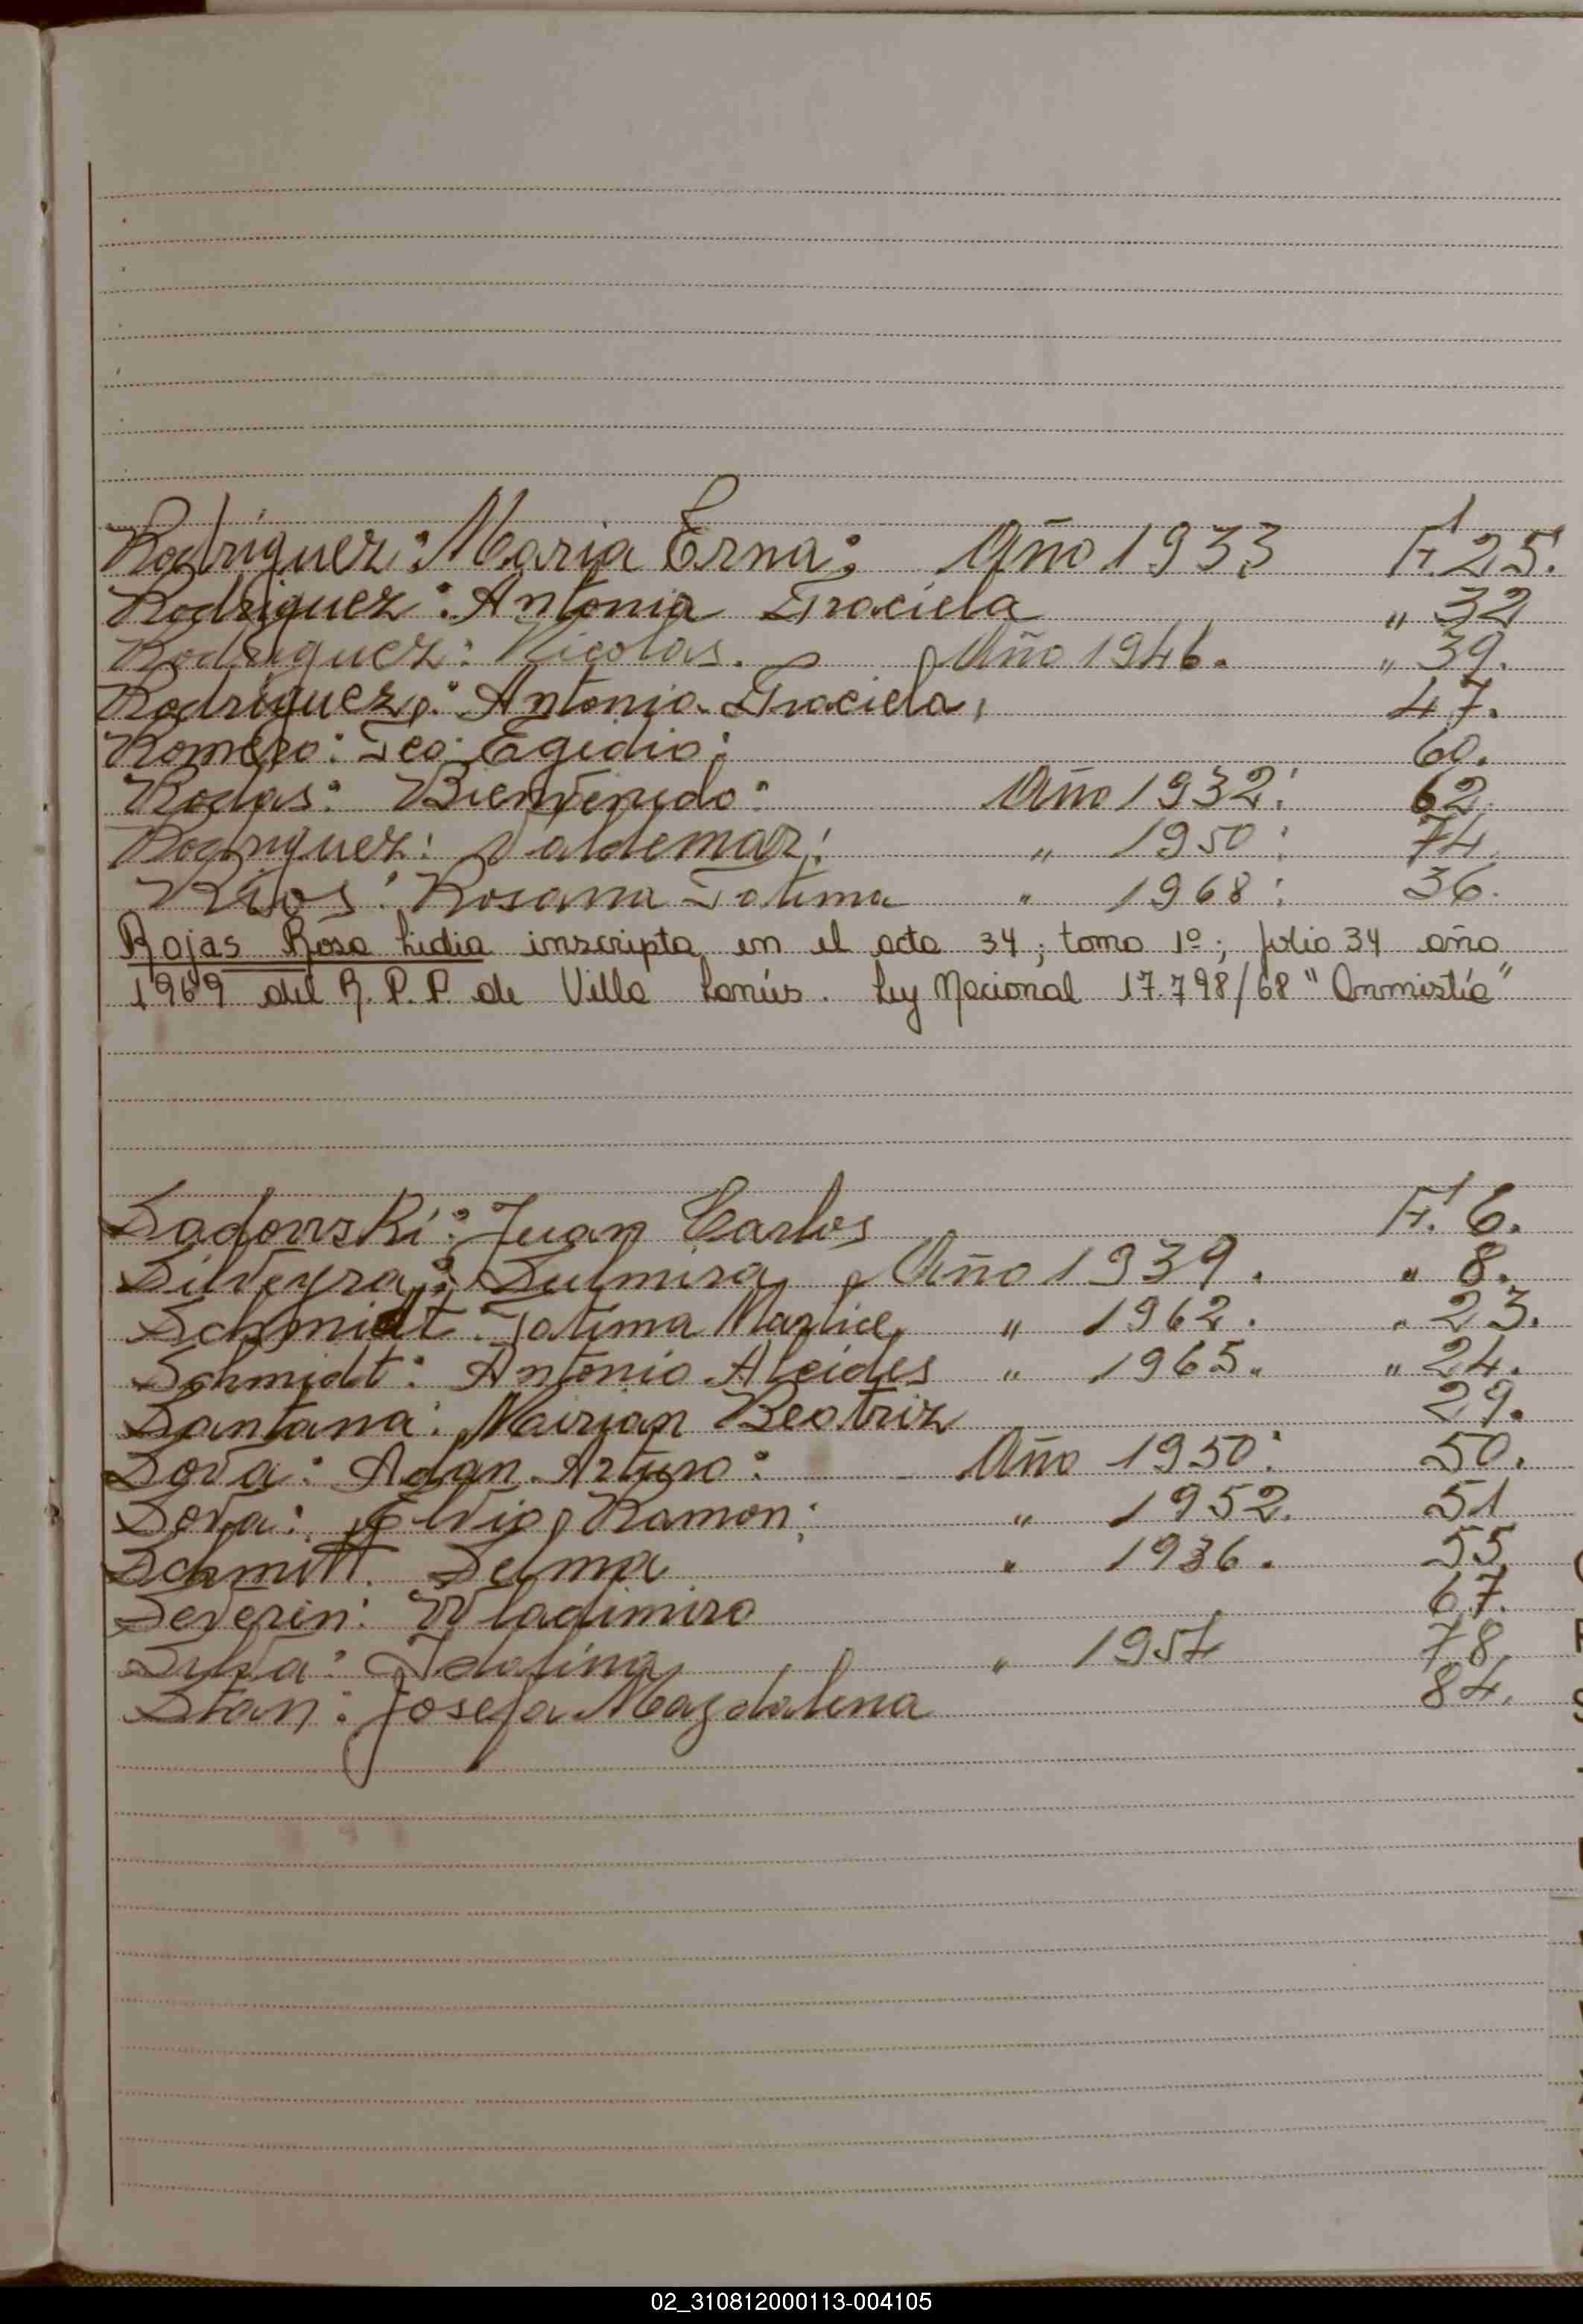 Rodriguez: Maria Erna: Año 1933 F. 25.
Rodriguez: Antonia Graciela " 32
Rodriguez: Nicolas. Año 1946. " 39.
Rodriguez: Antonia Graciela, 47.
Romero: Egidio: 60.
Rodas: Bienvenido: Año 1932: 62.
Rodriguez: Valdemar: " 1950: 74.
Rios: Rosana Fatima " 1968: 36.
Rojas Rosa Lidia inscripta en el acta 34; tomo 1º; folio 34 año
1969 del R.P.P. de Villa Lanús. Ley Nacional 17.798/68 "Ammistía"
Sadowski: Juan Carlos F. 6.
Silveyra: Sulmira Año 1939. " 8.
Schmidt: Fatima Marlice " 1962. " 23.
Schmidt: Antonio Alcides " 1965. " 24.
Santana: Mirian Beatriz 29.
Sova: Adan Arturo: Año 1950: 50.
Sova: Elvio Ramon: " 1952. 51
Schmitt. Selma " 1936. 55.
Severin: Wladimiro 67.
Silva: Idalina " 1957 78.
Stan: Josefa Magdalena 84.
02_310812000113-004105